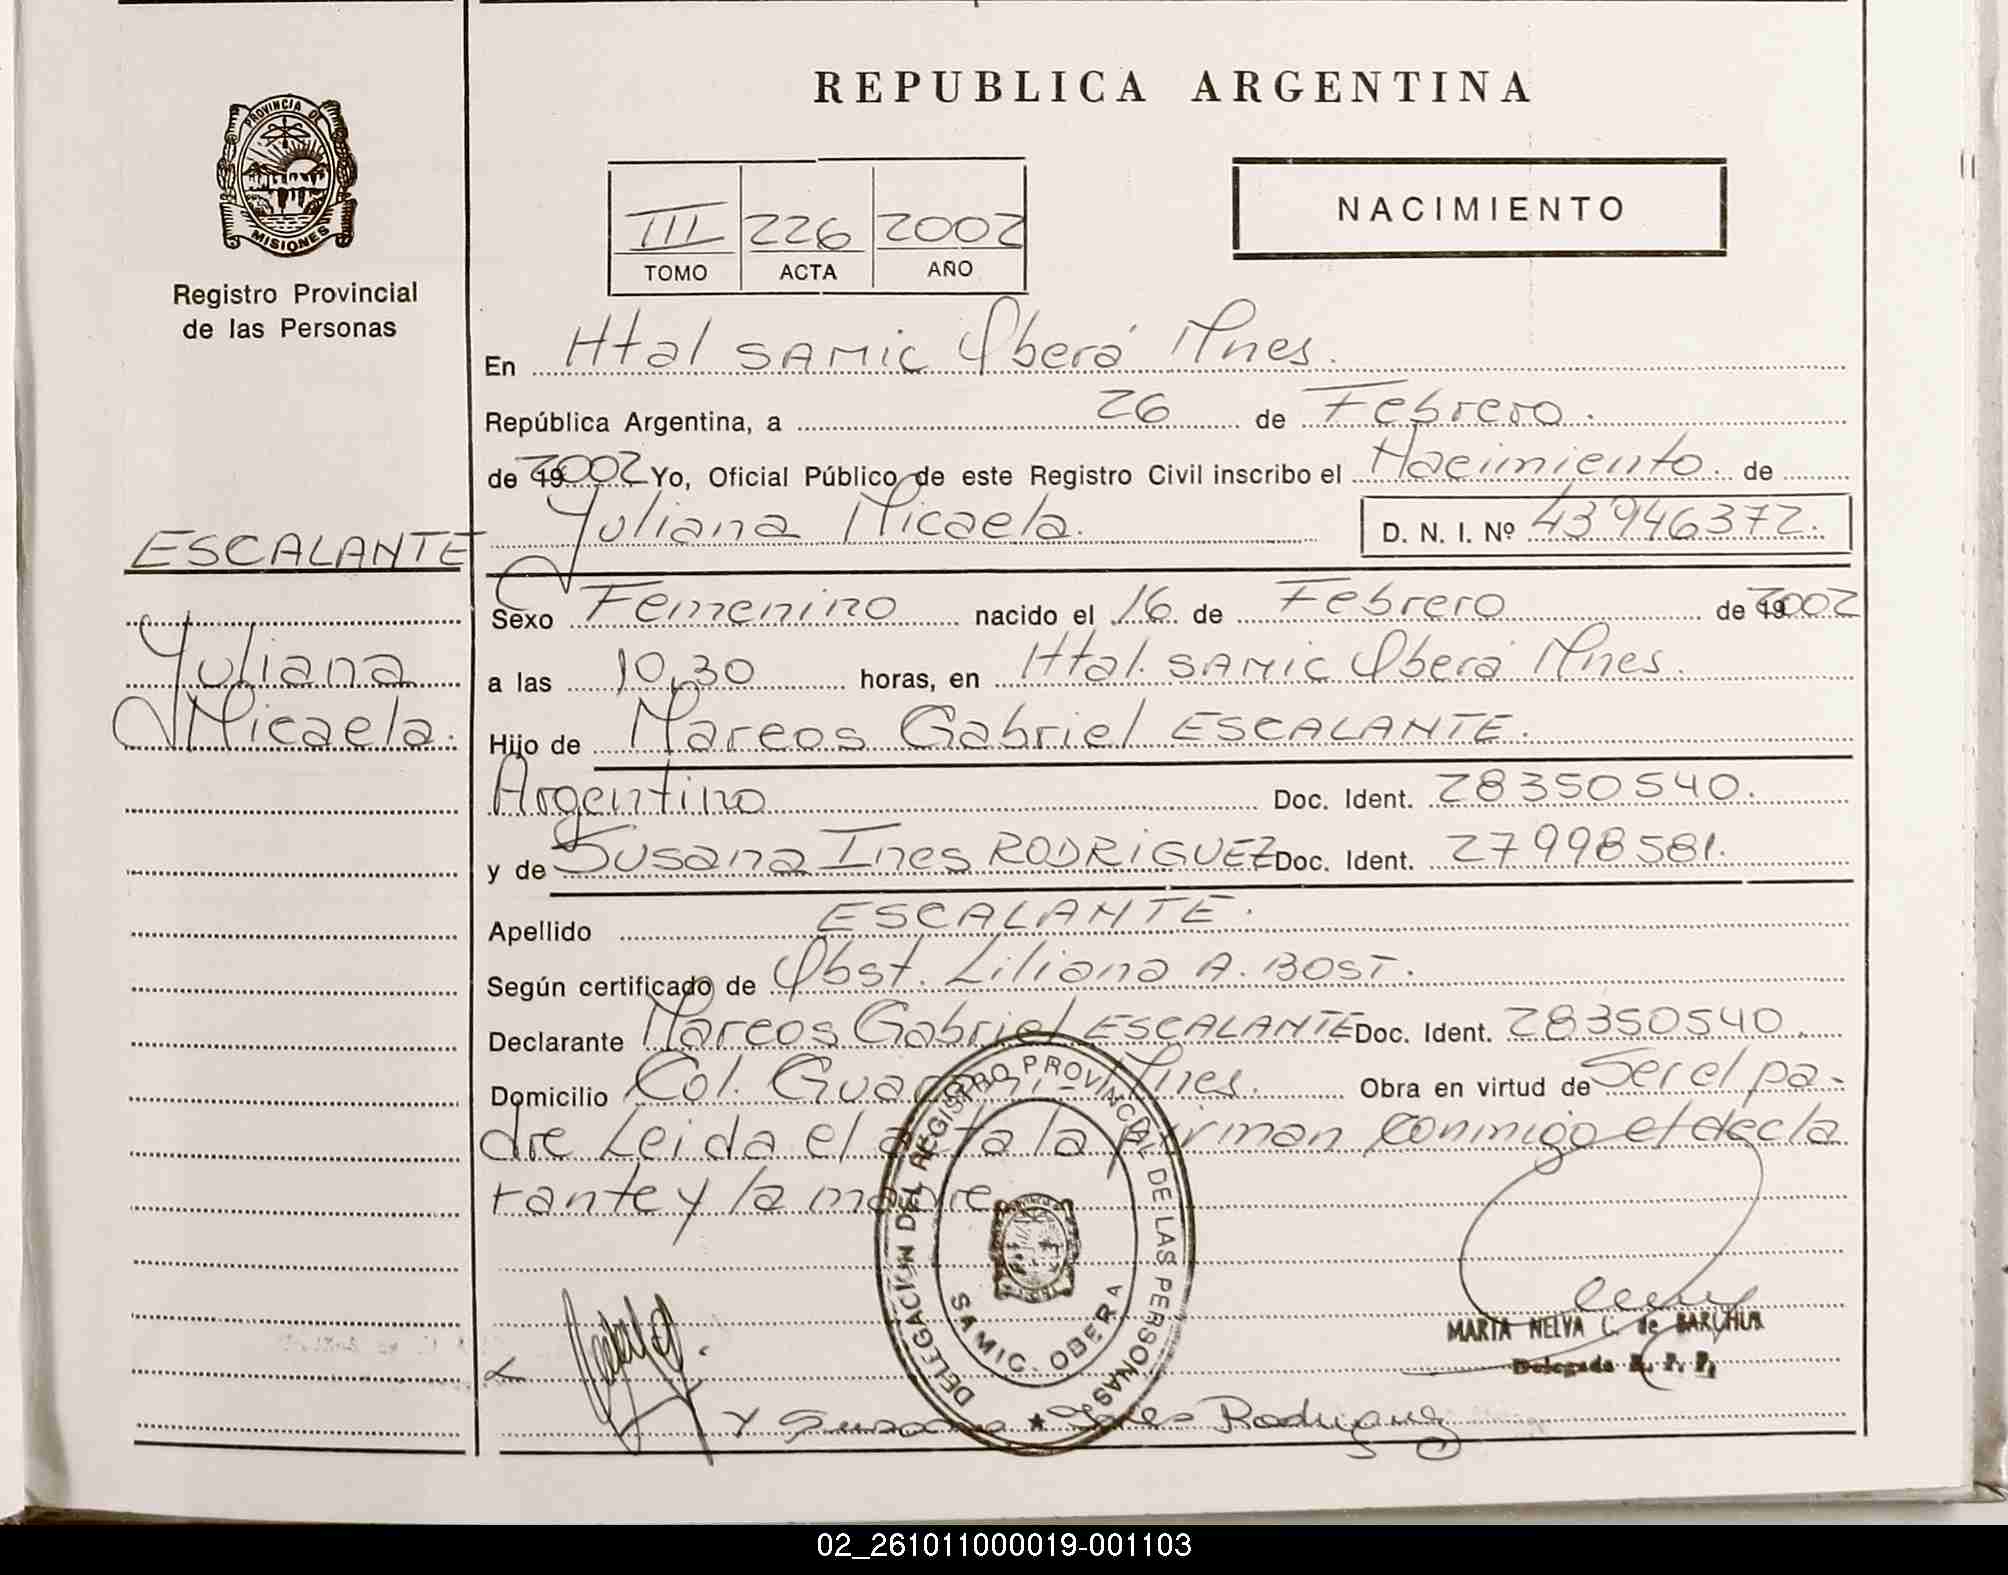 REPUBLICA ARGENTINA
PROVINCIA DE
MISIONES
Registro Provincial
de las Personas
III 226 2002
TOMO ACTA AÑO
NACIMIENTO
En Htal SAMIC Oberá Mnes.
República Argentina, a 26 de Febrero.
de 2002 Yo, Oficial Público de este Registro Civil inscribo el Nacimiento. de
Yuliana Micaela. D. N. I. Nº 43946372.
ESCALANTE
Yuliana
Micaela.
Sexo Femenino nacido el 16 de Febrero de 2002
a las 10,30 horas, en Htal. SAMIC Oberá Mnes.
Hijo de Marcos Gabriel ESCALANTE.
Argentino Doc. Ident. 28350540.
y de Susana Ines RODRIGUEZ Doc. Ident. 27998581.
Apellido ESCALANTE.
Según certificado de Obst. Liliana A. BOST.
Declarante Marcos Gabriel ESCALANTE Doc. Ident. 28350540.
Domicilio Col. Guarani - Mnes. Obra en virtud de Ser el pa-
dre Leida el acta la firman conmigo el decla
rante y la madre
DELEGACION DEL REGISTRO PROVINCIAL DE LAS PERSONAS
SAMIC. OBERA
MARTA NELVA C. de BARCHUK
Delegada R. P. P.
Y Susana Ines Rodriguez
02_261011000019-001103